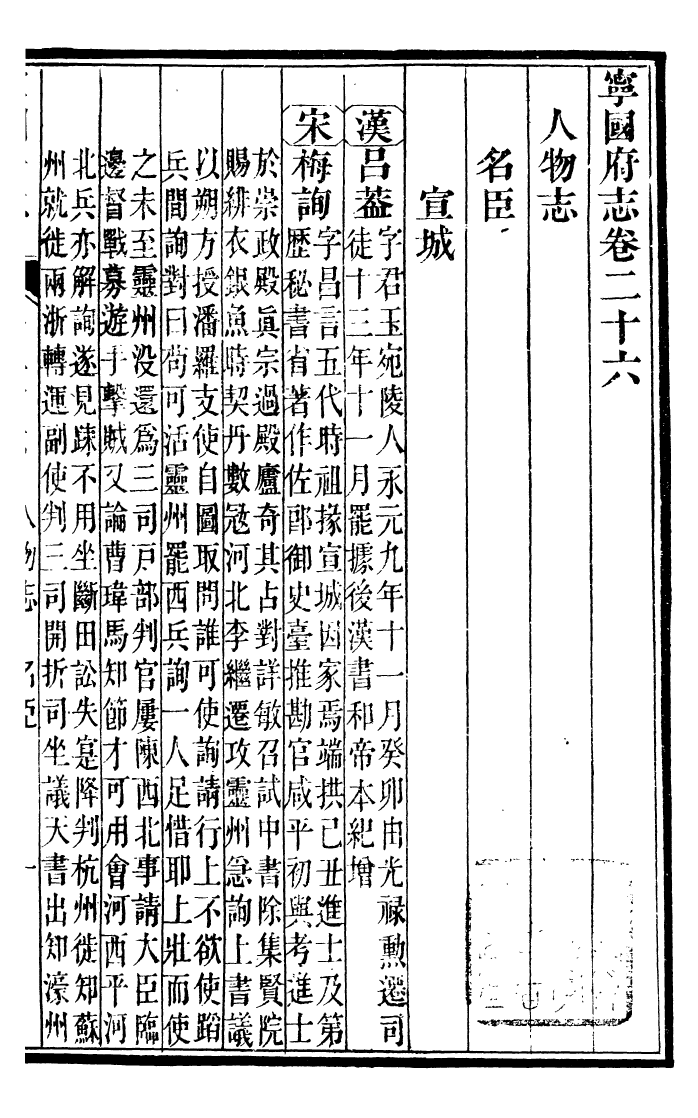 寧國府志卷二十六
人物志
名臣
宣城
漢呂葢字君玉宛陵人永元九年十一月癸卯由光祿勲遷司
徒十三年十一月罷據後漢書和帝本紀增
宋梅詢字昌言五代時祖掾宣城因家焉端拱己丑進士及第
歷秘書省著作佐郎御史臺推勘官咸平初與考進士
於崇政殿眞宗過殿廬奇其占對詳敏召試中書除集賢院
賜緋衣銀魚時契丹數冦河北李繼遷攻靈州急詢上書議
以朔方授潘羅支使自圖取問誰可使詢請行上不欲使蹈
兵間詢對曰茍可活靈州罷西兵詢一人足惜耶上壯而使
之未至靈州没還爲三司戸部判官屢陳西北事請大臣臨
邊督戰募遊手擊賊又論曹瑋馬知節才可用會河西平河
北兵亦解詢遂見踈不用坐斷田訟失寔降判杭州徙知蘇
州就徙兩浙轉運副使判三司開折司坐議天書出知濠州
人物志 名臣 一